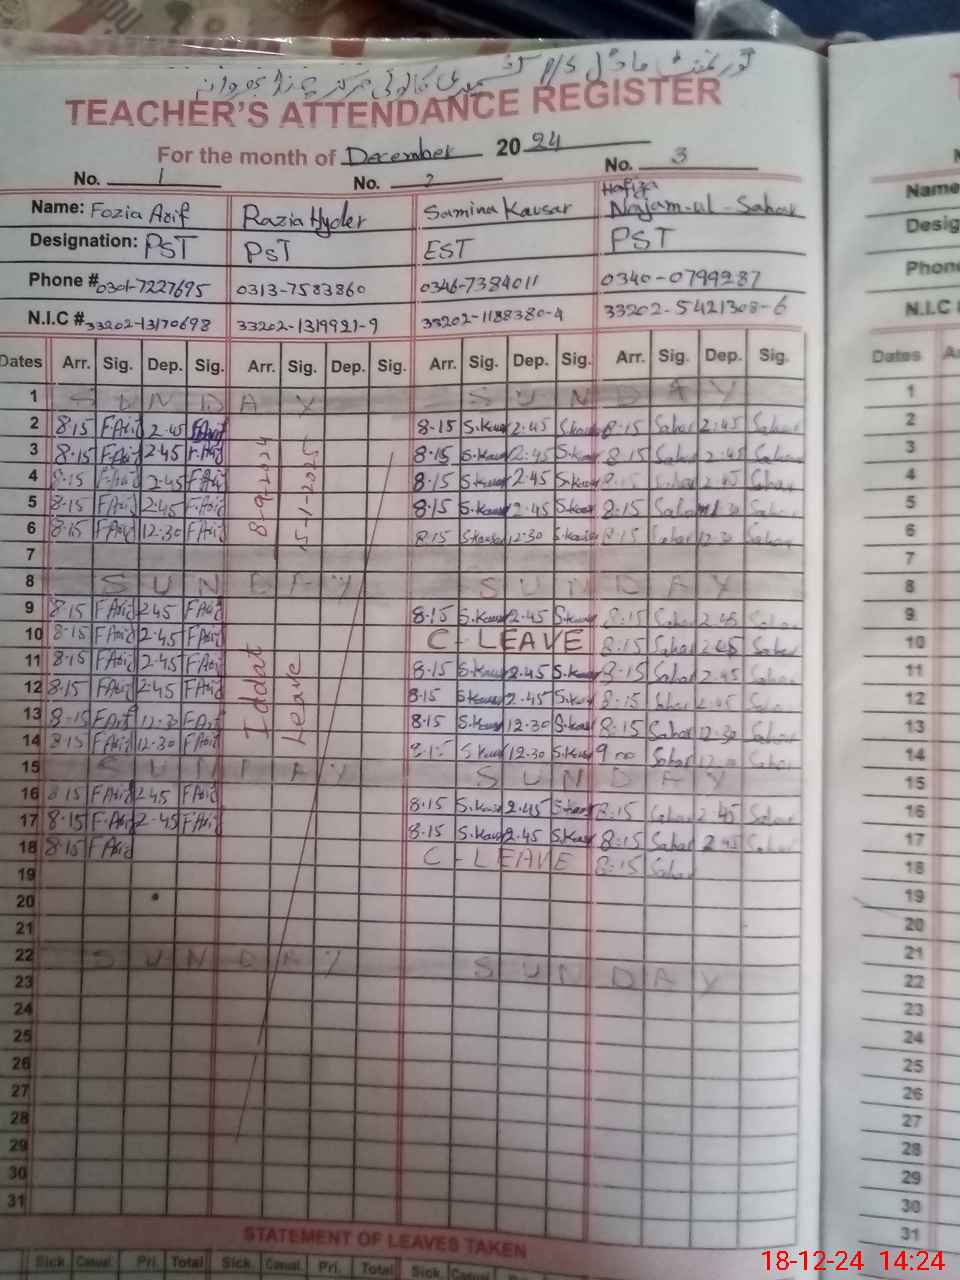 گورنمنٹ ماڈل P/S
TEACHER'S ATTENDANCE REGISTER
For the month of December 2024
No. 1 No. 2 No. 3
Name: Fozia Arif Razia Hyder Samina Kausar Hafiza Najam-ul-Sahar
Designation: PST PST EST PST
Phone # 0301-7227695 0313-7583860 0346-7384011 0340-0799287
N.I.C # 33202-13170698 33202-1319921-9 33202-1188380-4 33202-5421308-6
Dates Arr. Sig. Dep. Sig. Arr. Sig. Dep. Sig. Arr. Sig. Dep. Sig. Arr. Sig. Dep. Sig.
1 SUNDAY SUNDAY
2 8-15 F.Arif 2-45 F.Arif 8-15 S.Kausar 2-45 S.Kausar 8-15 Sahar 2-45 Sahar
3 8-15 F.Arif 2-45 F.Arif 8-15 S.Kausar 2-45 S.Kausar 8-15 Sahar 2-45 Sahar
4 8-15 F.Arif 2-45 F.Arif 8-15 S.Kausar 2-45 S.Kausar 8-15 Sahar 2-45 Sahar
5 8-15 F.Arif 2-45 F.Arif 8-15 S.Kausar 2-45 S.Kausar 8-15 Sahar Sahar
6 8-15 F.Arif 12-30 F.Arif 8-15 S.Kausar 12-30 S.Kausar 8-15 Sahar 12-30 Sahar
8-9-2024
15-1-2025
7
8 SUNDAY SUNDAY
9 8-15 F.Arif 2-45 F.Arif 8-15 S.Kausar 2-45 S.Kausar 8-15 Sahar 2-45 Sahar
10 8-15 F.Arif 2-45 F.Arif C-LEAVE 8-15 Sahar 2-45 Sahar
11 8-15 F.Arif 2-45 F.Arif 8-15 S.Kausar 2-45 S.Kausar 8-15 Sahar 2-45 Sahar
12 8-15 F.Arif 2-45 F.Arif 8-15 S.Kausar 2-45 S.Kausar 8-15 Sahar 2-45 Sahar
13 8-15 F.Arif 12-30 F.Arif 8-15 S.Kausar 12-30 S.Kausar 8-15 Sahar 12-30 Sahar
14 8-15 F.Arif 12-30 F.Arif 8-15 S.Kausar 12-30 S.Kausar Sahar Sahar
Iddat
Leave
15 SUNDAY SUNDAY
16 8-15 F.Arif 2-45 F.Arif 8-15 S.Kausar 2-45 S.Kausar 8-15 Sahar 2-45 Sahar
17 8-15 F.Arif 2-45 F.Arif 8-15 S.Kausar 2-45 S.Kausar 8-15 Sahar 2-45 Sahar
18 8-15 F.Arif C-LEAVE 8-15 Sahar
19
20
21
22 SUNDAY SUNDAY
23
24
25
26
27
28
29
30
31
STATEMENT OF LEAVES TAKEN
Sick. Casual. Pri. Total Sick. Casual. Pri. Total Sick. Casual. Pri. Total Sick.
Name
Desig
Phone
N.I.C
Dates
1
2
3
4
5
6
7
8
9
10
11
12
13
14
15
16
17
18
19
20
21
22
23
24
25
26
27
28
29
30
31
18-12-24 14:24